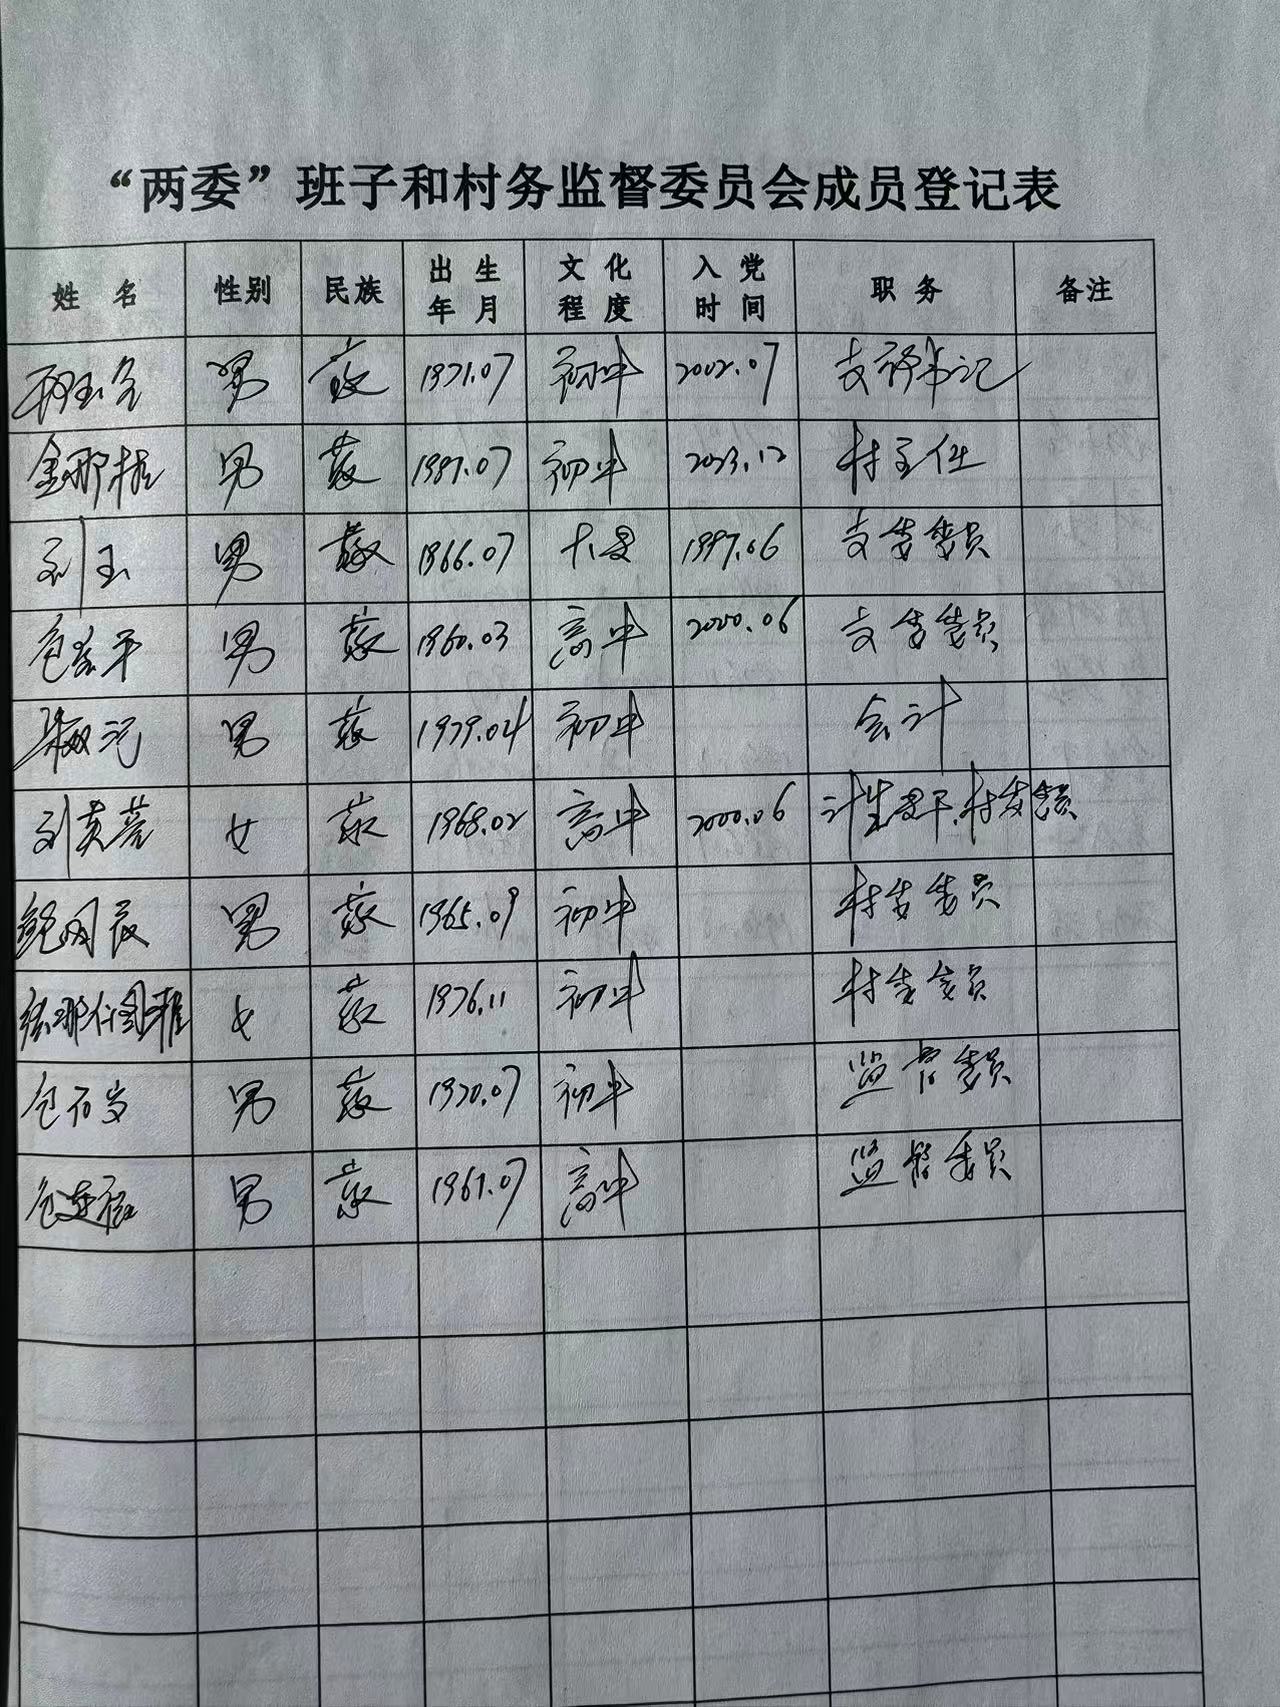 “两委”班子和村务监督委员会成员登记表
姓 名 性别 民族 出生年月 文化程度 入党时间 职务 备注
男 蒙 1971.07 初中 2002.07 支部书记
金那 男 蒙 1987.07 初中 2023.12 村主任
刘玉 男 蒙 1966.07 大专 1997.06 支委委员
包 平 男 蒙 1960.03 高中 2000.06 支委委员
男 蒙 1979.04 初中 会计
刘英 女 蒙 1968.02 高中 2000.06 计生 村委委员
鲍 男 蒙 1965.09 初中 村委委员
那仁图雅 女 蒙 1976.11 初中 村委委员
包百岁 男 蒙 1970.07 初中 监督委员
包连 男 蒙 1967.07 高中 监督委员